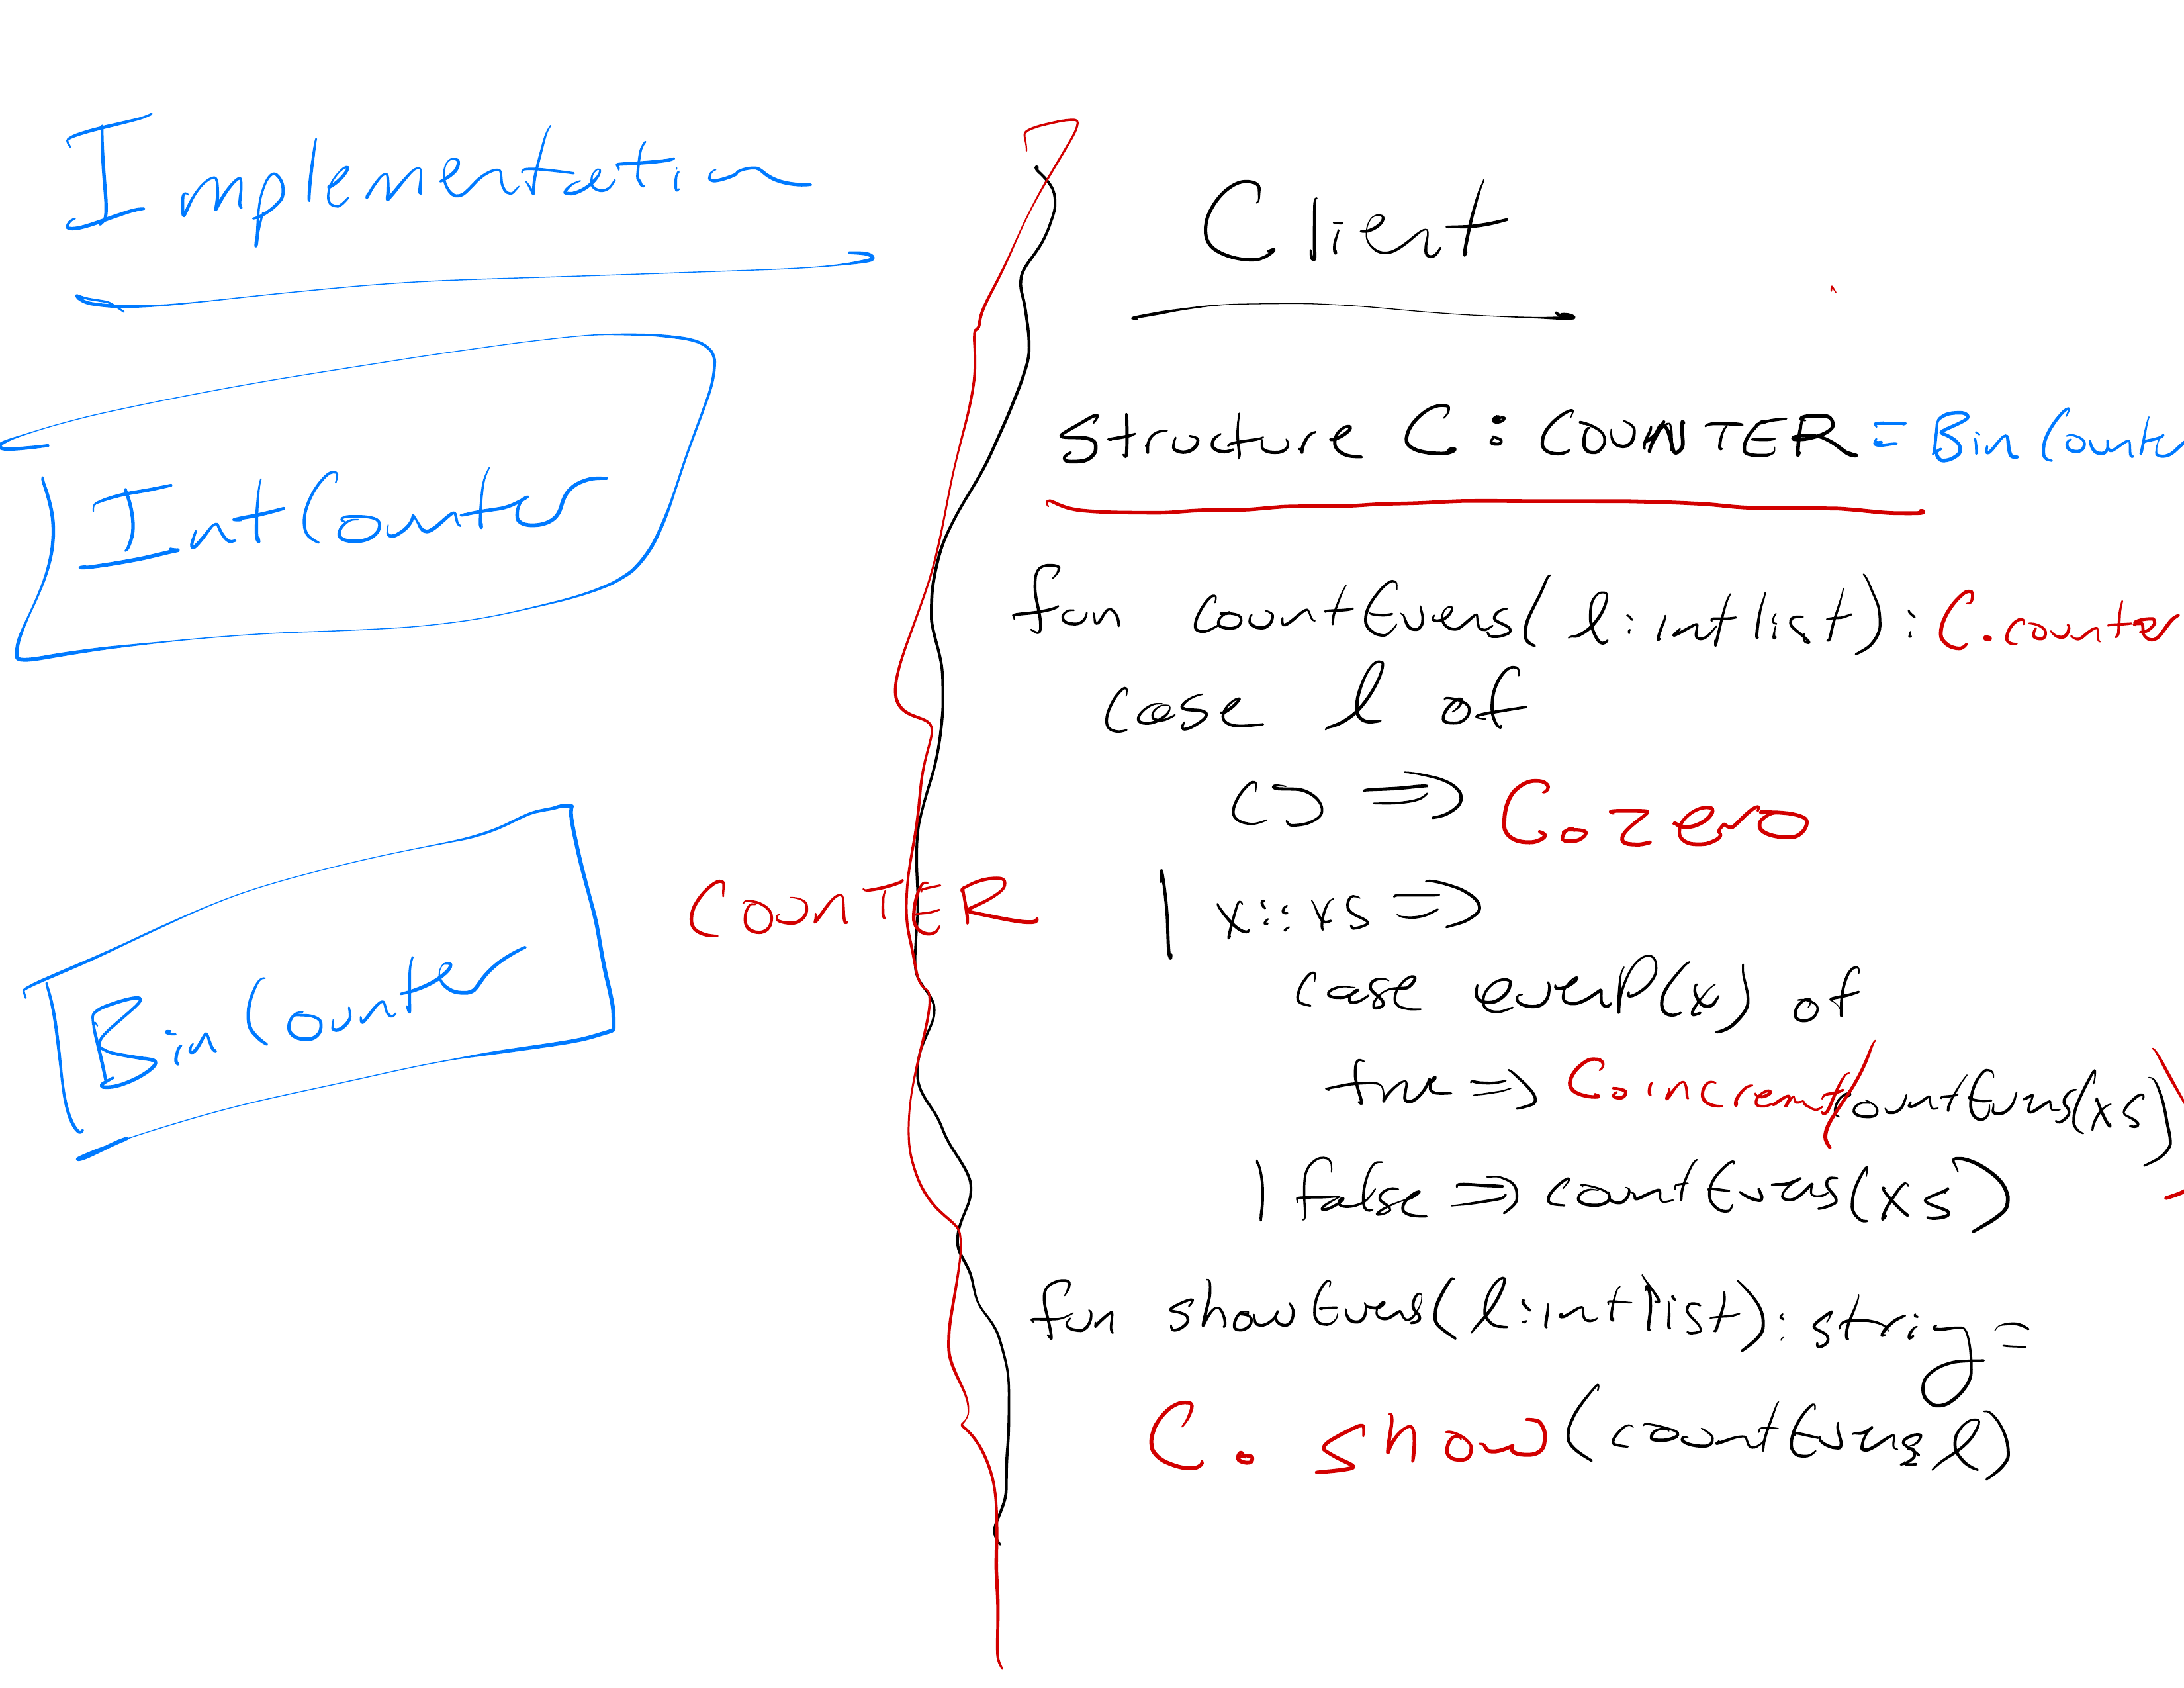 Implementation
IntCounter
BinCounter
COUNTER
Client
structure C : COUNTER = BinCount
fun countEvens(l:int list): C.counter
case l of
[] => C.zero
| x::xs =>
case evenP(x) of
true => C.increment(countEvens(xs))
| false => countEvens(xs)
fun showEvens(l:int list): string =
C.show(countEvens l)